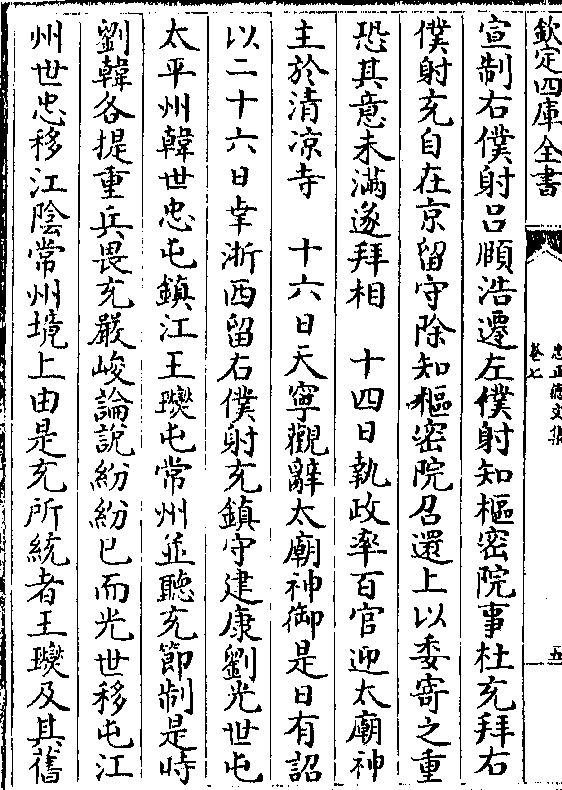 欽定四庫全書
忠正德文集
卷七
五
宣制右僕射吕頤浩遷左僕射知樞密院事杜充拜右
僕射充自在京留守除知樞密院召還上以委寄之重
恐其意未滿遂拜相　十四日執政率百官迎太廟神
主於清凉寺　十六日天寧觀辭太廟神御是日有詔
以二十六日幸浙西留右僕射充鎮守建康劉光世屯
太平州韓世忠屯鎮江王𤫉屯常州並聽充節制是時
劉韓各提重兵畏充嚴峻論說紛紛已而光世移屯江
州世忠移江陰常州境上由是充所統者王𤫉及其舊